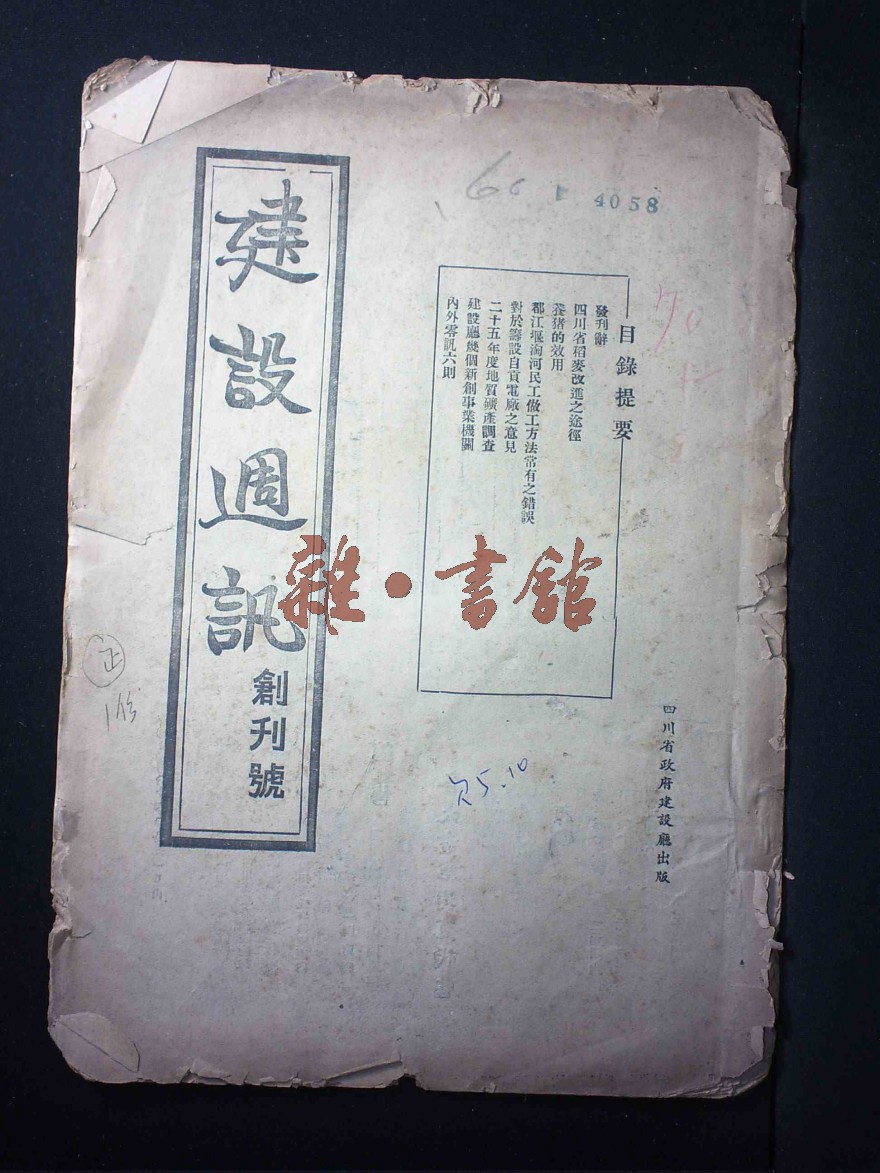 4058
目錄提要
發刊辭
四川省稻麥改進之途徑
養猪的效用
都江堰淘河民工做工方法常有之錯誤
對於籌設自貢電廠之意見
二十五年度地質礦產調查
建設廳幾個新創事業機關
內外零訊六則
四川省政府建設廳出版
建設週訊
創刊號
雜·書館
正
5.10